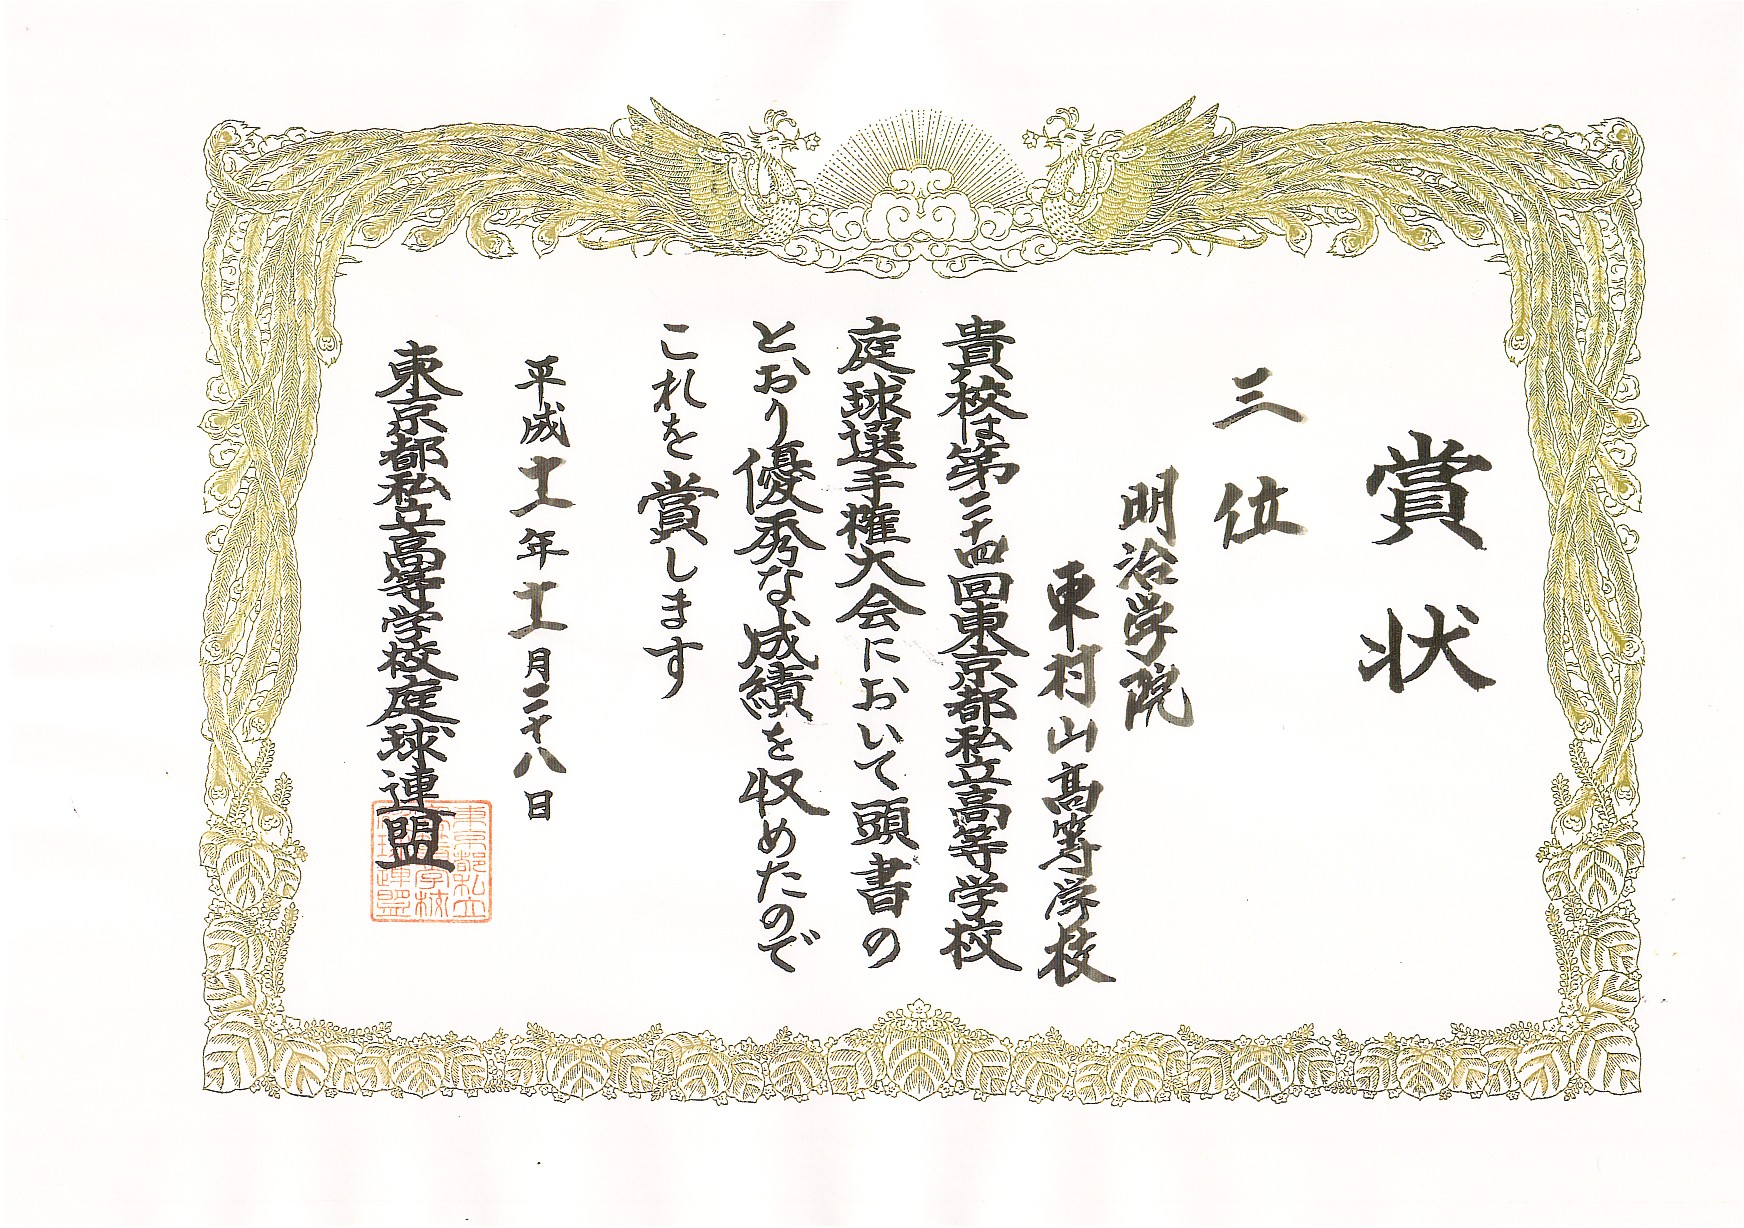 賞状
三位
明治学院
東村山高等学校
貴校は第二十四回東京都私立高等学校
庭球選手権大会において頭書の
とおり優秀な成績を収めたので
これを賞します
平成 年 月二十八日
東京都私立高等学校庭球連盟